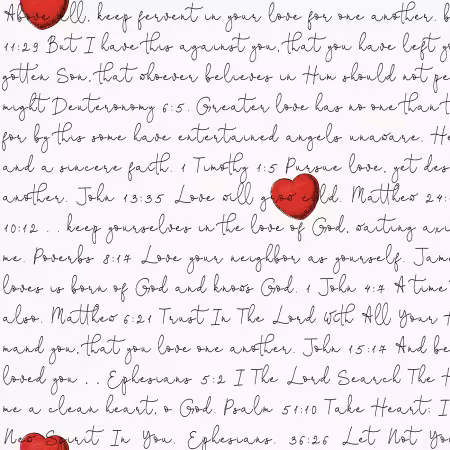 Above all, keep fervent in your love for one another. b
11:29 But I have this against you, that you have left y
gotten Son, that whoever believes in Him should not pe
might Deuteronomy 6:5. Greater love has no one than t
for by this some have entertained angels unaware. He
and a sincere faith. 1 Timothy 1:5 Pursue love, yet des
another. John 13:35 Love will grow cold. Matthew 24:
10:12 .. keep yourselves in the love of God, waiting anx
me. Poverbs 8:17 Love your neighbor as yourself. Jam
loves is born of God and knows God. 1 John 4:7 A time
also. Matthew 6:21 Trust In The Lord With All Your H
mand you, that you love one another. John 15:17 And be
loved you .. Ephesians 5:2 I The Lord Search The H
me a clean heart, o God. Psalm 51:10 Take Heart; I
New Spirit In You. Ephesians. 36:26 Let Not Yo